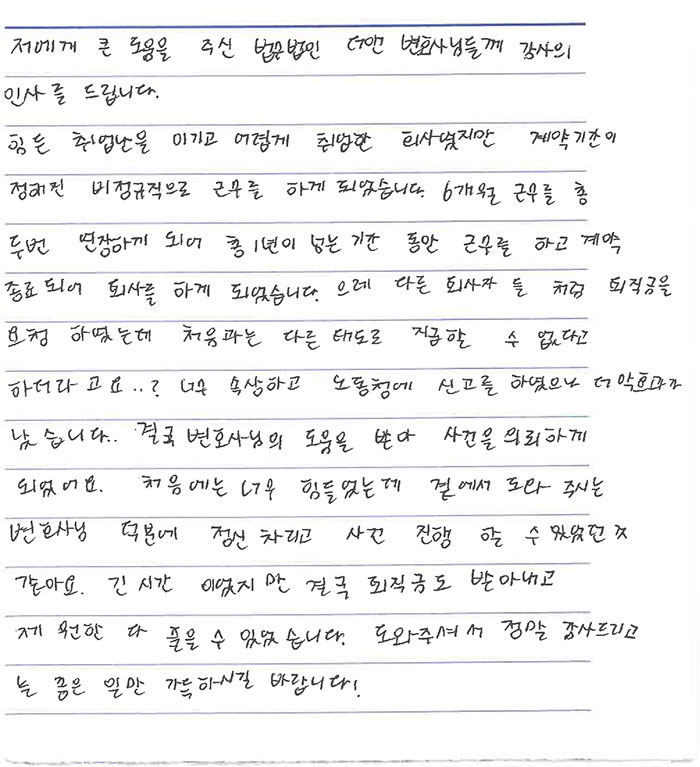 저에게 큰 도움을 주신 법무법인 더앤 변호사님들께 감사의
인사를 드립니다.
힘든 취업난을 이기고 어렵게 취업한 회사였지만 계약기간이
정해진 비정규직으로 근무를 하게 되었습니다. 6개월 근무를 총
두번 연장하게 되어 총 1년이 넘는 기간 동안 근무를 하고 계약
종료되어 퇴사를 하게 되었습니다. 으레 다른 퇴사자 들 처럼 퇴직금을
요청 하였는데 처음과는 다른 태도로 지급할 수 없다고
하더라고요..? 너무 속상하고 노동청에 신고를 하였으나 더 악효과가
났습니다.. 결국 변호사님의 도움을 받아 사건을 의뢰하게
되었어요. 처음에는 너무 힘들었는데 곁에서 도와 주시는
변호사님 덕분에 정신 차리고 사건 진행 할 수 있었던 것
같아요. 긴 시간 이었지만 결국 퇴직금도 받아내고
제 원한 다 풀을 수 있었습니다. 도와주셔서 정말 감사드리고
늘 좋은 일만 가득하시길 바랍니다!